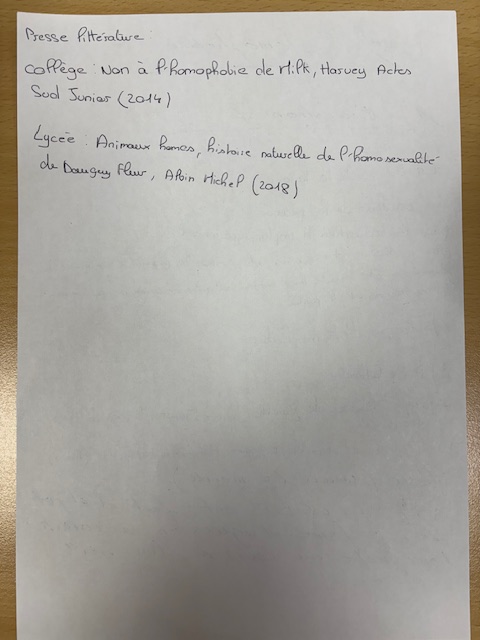 Presse littérature :
Collège : Non à l'homophobie de Milk, Harvey Actes
Sud Junior (2014)
Lycée : Animaux homos, histoire naturelle de l'homosexualité
de Daugey Fleur, Albin Michel (2018)